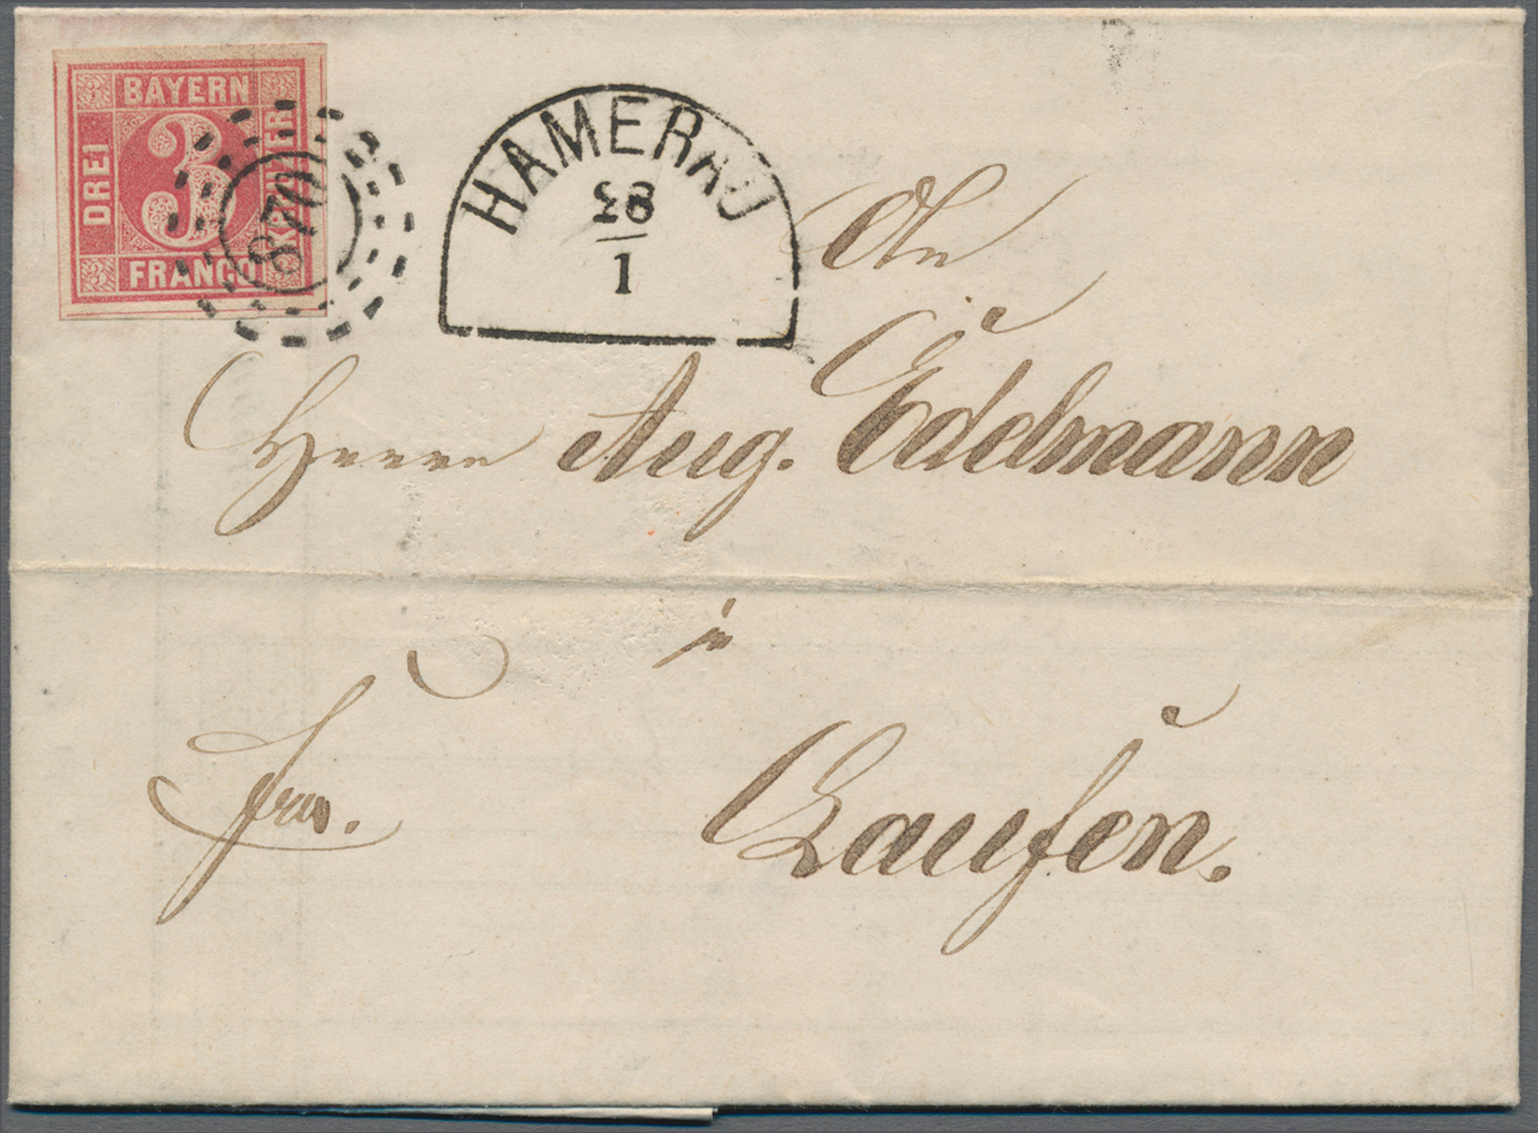 BAYERN
DREI 3 KREUZER
FRANCO
670
HAMERAU
28
1
An
Herrn Aug. Edelmann
in
fro.
Laufen.